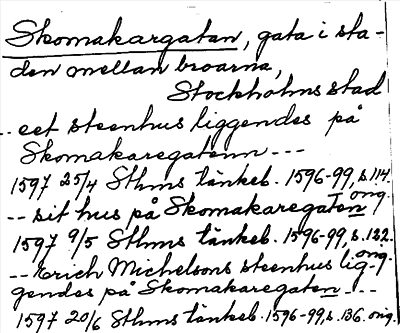 Skomakargatan, gata i sta-
den mellan broarna,
Stockholms stad
.. eet steenhus liggendes på
Skomakaregatenn ---
1597 25/4 Sthms tänkeb. 1596-99, s. 114.
orig.
-- sit hus på Skomakaregaten
1597 9/5 Sthms tänkeb. 1596-99, s. 122.
orig.
-- Erich Michelsons steenhus lig-
gendes på Skomakaregaten ---
1597 20/6 Sthms tänkeb. 1596-99, s. 136. orig.